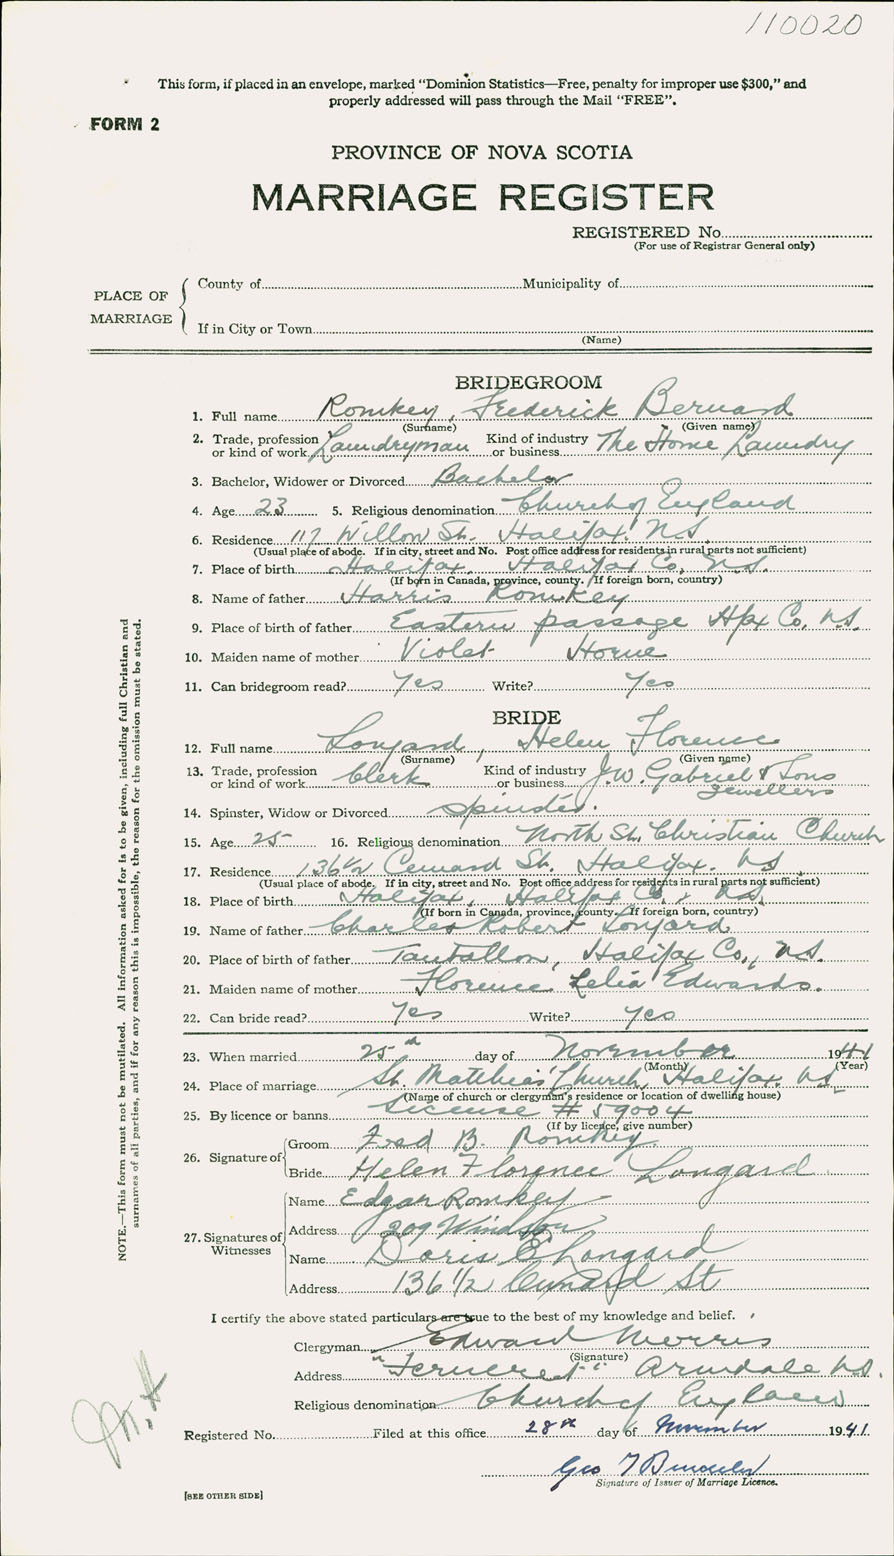 110020
This form, if placed in an envelope, marked "Dominion Statistics—Free, penalty for improper use $300," and
properly addressed will pass through the Mail "FREE".
FORM 2
PROVINCE OF NOVA SCOTIA
MARRIAGE REGISTER
REGISTERED No.
(For use of Registrar General only)
PLACE OF MARRIAGE
County of Municipality of
If in City or Town
(Name)
BRIDEGROOM
1. Full name Romkey, Frederick Bernard
(Surname) (Given name)
2. Trade, profession or kind of work Laundryman Kind of industry or business The Home Laundry
3. Bachelor, Widower or Divorced Bachelor
4. Age 23 5. Religious denomination Church of England
6. Residence 117 Willow St. Halifax. N.S.
(Usual place of abode. If in city, street and No. Post office address for residents in rural parts not sufficient)
7. Place of birth Halifax. Halifax Co. N.S.
(If born in Canada, province, county. If foreign born, country)
8. Name of father Harris Romkey
9. Place of birth of father Eastern passage Hfx Co. N.S.
10. Maiden name of mother Violet Horne
11. Can bridegroom read? Yes Write? Yes
BRIDE
12. Full name Longard, Helen Florence
(Surname) (Given name)
13. Trade, profession or kind of work Clerk Kind of industry or business J.W. Gabriel & Sons
Jewellers
14. Spinster, Widow or Divorced Spinster.
15. Age 25 16. Religious denomination North St. Christian Church
17. Residence 136 1/2 Cunard St. Halifax. N.S.
(Usual place of abode. If in city, street and No. Post office address for residents in rural parts not sufficient)
18. Place of birth Halifax, Halifax Co., N.S.
(If born in Canada, province, county. If foreign born, country)
19. Name of father Charles Robert Longard
20. Place of birth of father Tantallon, Halifax Co., N.S.
21. Maiden name of mother Florence Lelia Edwards.
22. Can bride read? Yes Write? Yes
23. When married 25th day of November 1941
(Month) (Year)
24. Place of marriage St. Matthias' Church, Halifax. N.S.
(Name of church or clergyman's residence or location of dwelling house)
25. By licence or banns License # 59004
(If by licence, give number)
26. Signature of
Groom Fred B. Romkey
Bride Helen Florence Longard
27. Signatures of Witnesses
Name Edgar Romkey
Address 209 Windsor
Name Doris E Longard
Address 136 1/2 Cunard St
I certify the above stated particulars are true to the best of my knowledge and belief.
Clergyman Edward Morris
(Signature)
Address Armdale N.S.
Religious denomination Church of England
Registered No. Filed at this office 28th day of November 1941.
Geo
Signature of Issuer of Marriage Licence.
[SEE OTHER SIDE]
NOTE.—This form must not be mutilated. All information asked for is to be given, including full Christian and
surnames of all parties, and if for any reason this is impossible, the reason for the omission must be stated.